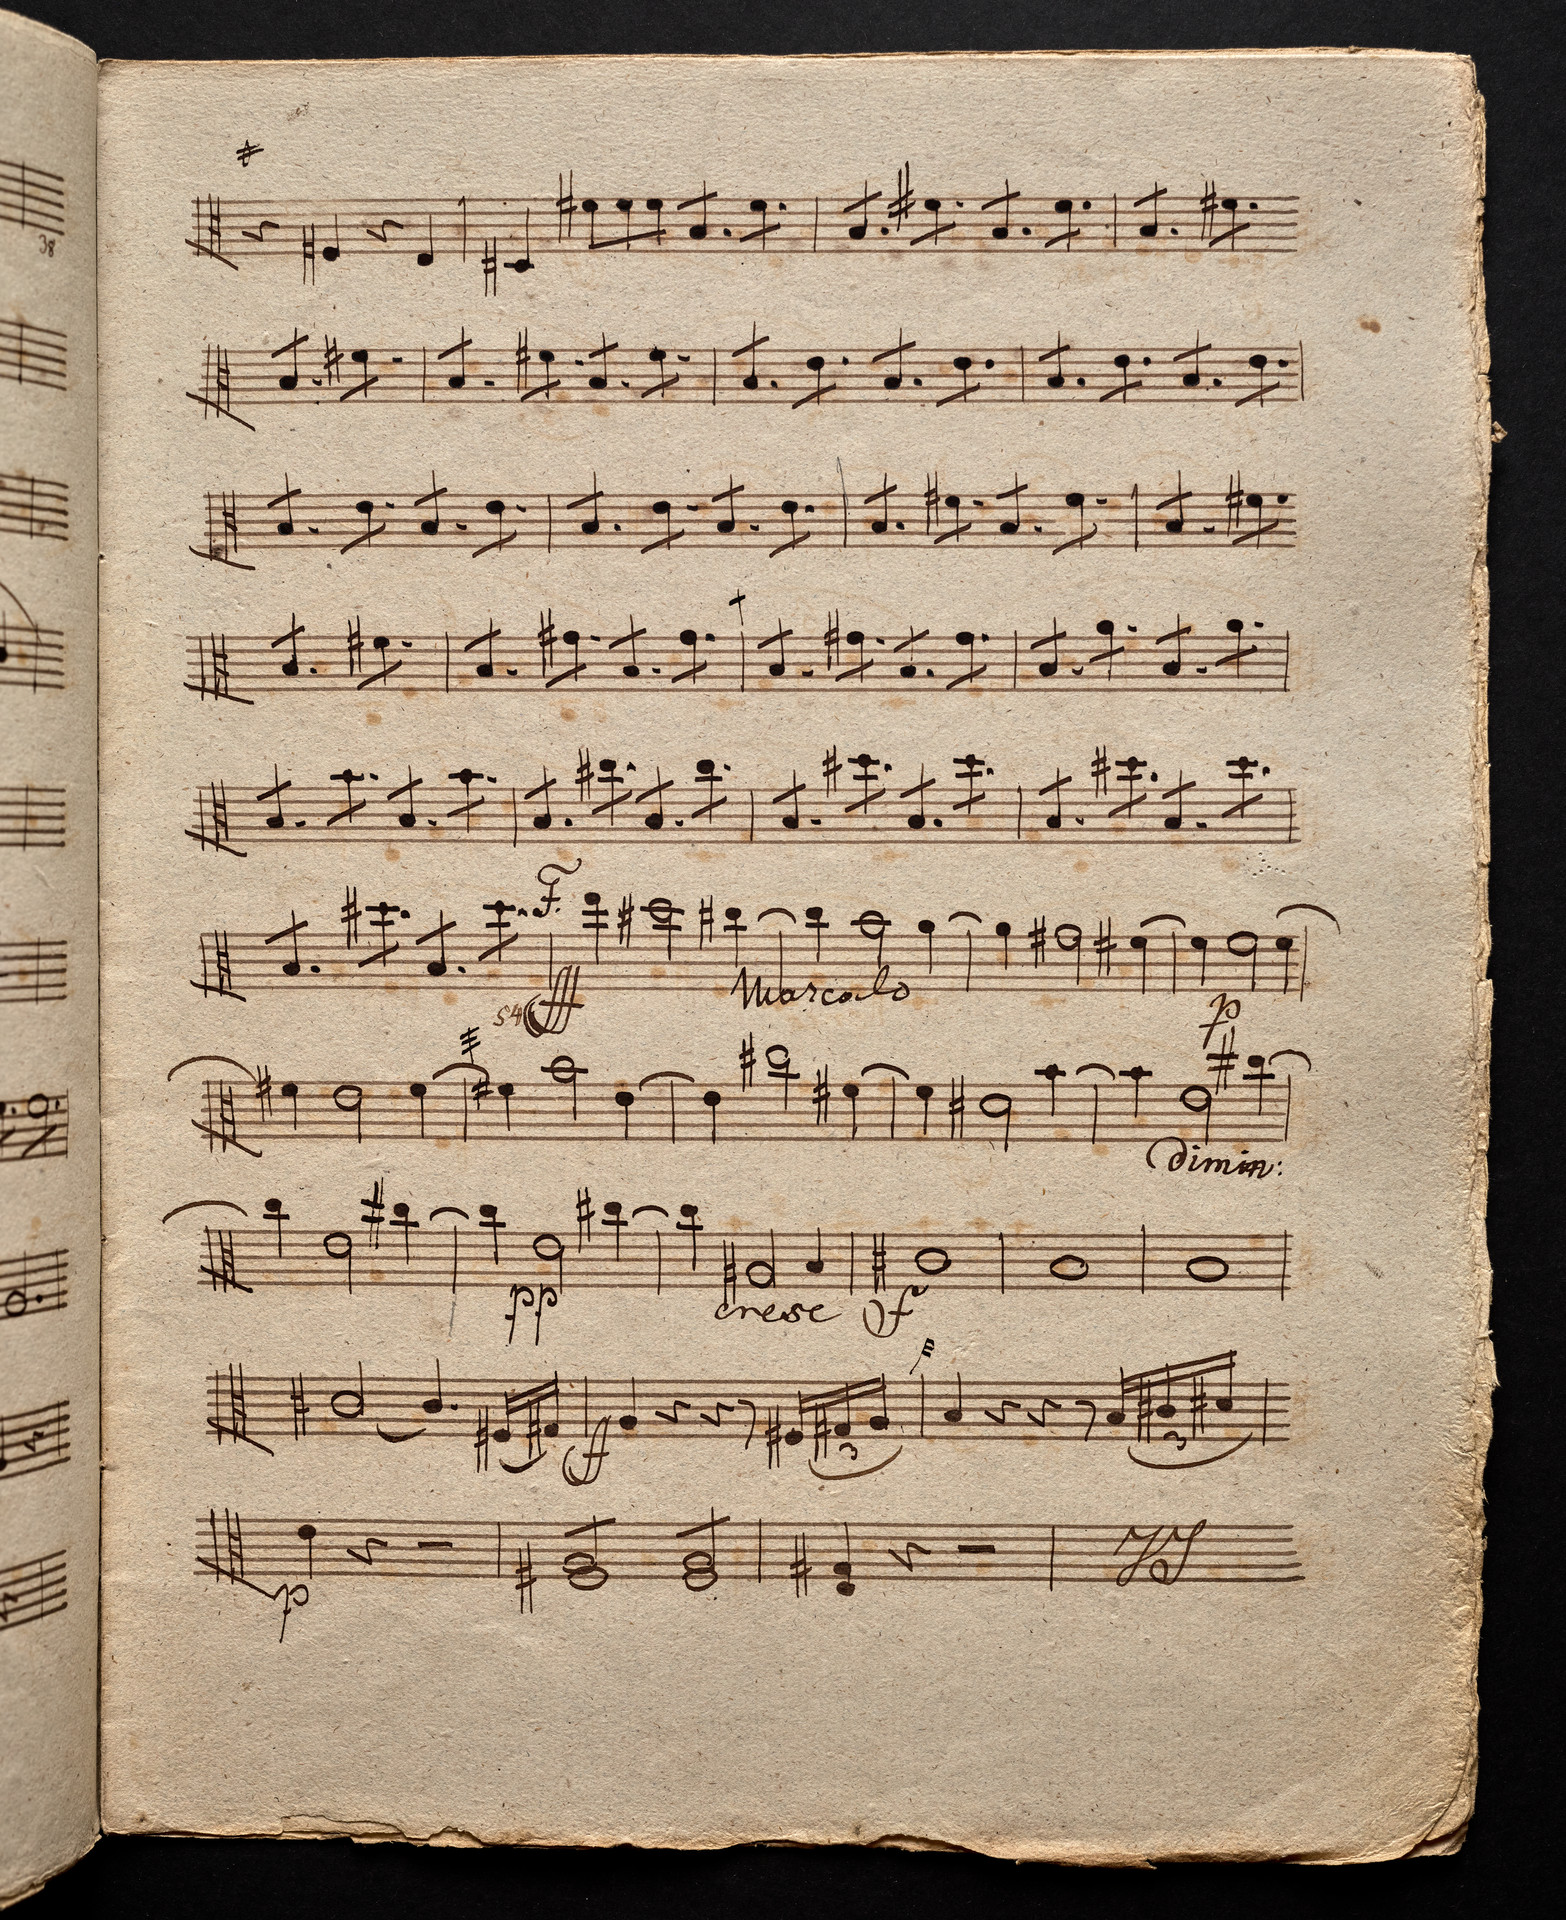 38
F.
s4 fff Marcalo
p
dimin:
pp cresc f
ff 3 3
p VS